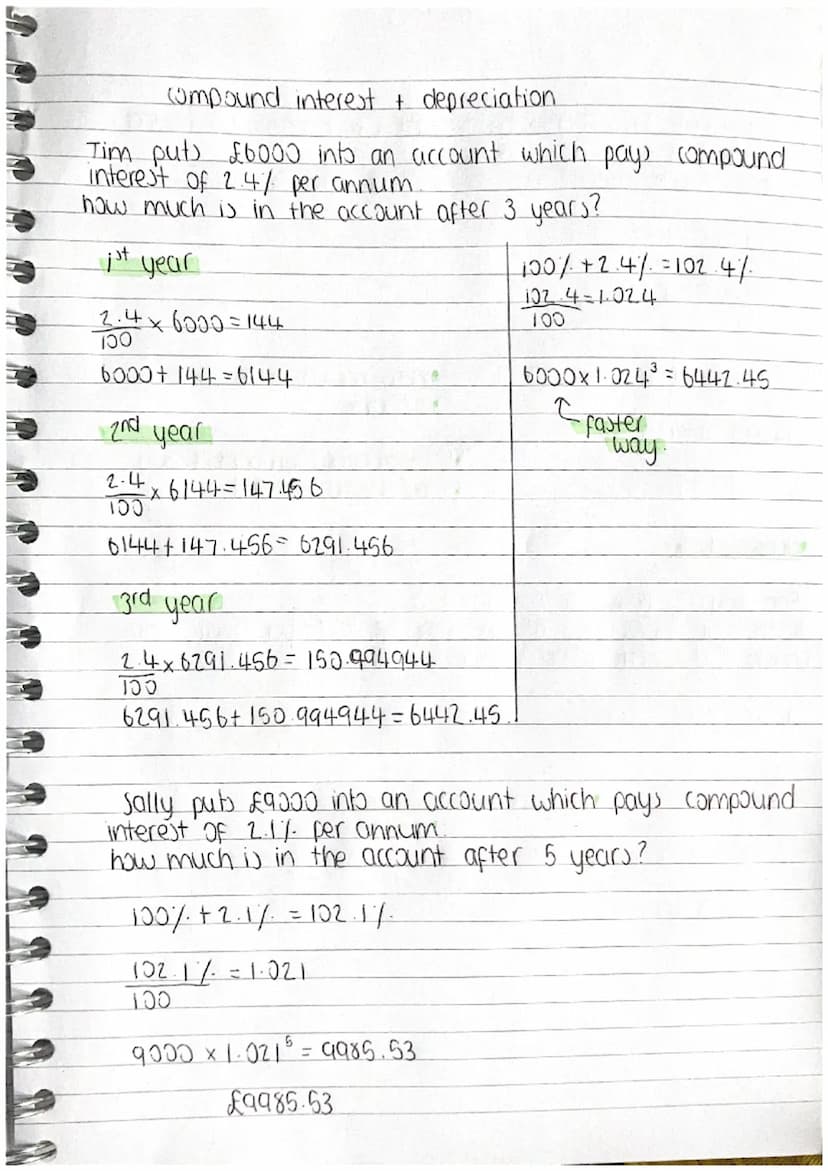 compound interest + depreciation
Tim puts £6000 into an account which pays compound
interest of 2.4% per annum.
how much is in the account after 3 years?
1st year
2.4/100 × 6000 = 144
6000 + 144 = 6144
2nd year
2.4/100 × 6144 = 147.456
6144 + 147.456 = 6291.456
3rd year
2.4/100 × 6291.456 = 150.994944
6291.456 + 150.994944 = 6442.45
100% + 2.4% = 102.4%
102.4/100 = 1.024
6000 × 1.024³ = 6442.45
faster
way.
Sally puts £9000 into an account which pays compound
interest of 2.1% per annum.
how much is in the account after 5 years?
100% + 2.1% = 102.1%
102.1%/100 = 1.021
9000 × 1.021⁵ = 9985.53
£9985.53